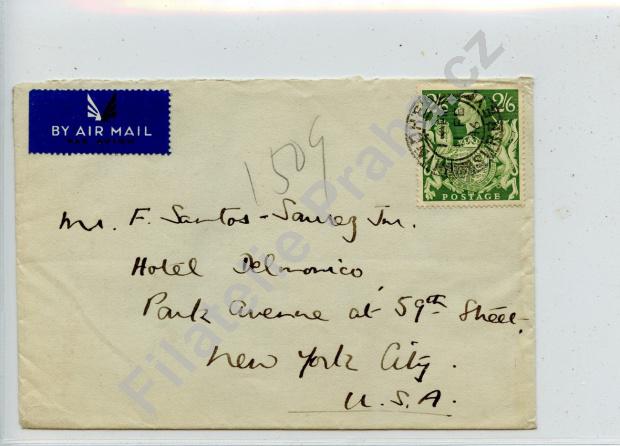 BY AIR MAIL
PAR AVION
2/6 2/6
POSTAGE
1509
Mr. F. Santos-Suarez Jnr.
Hotel Delmonico
Park Avenue at 59th Street,
New York City.
U.S.A.
Filatelie Praha.cz